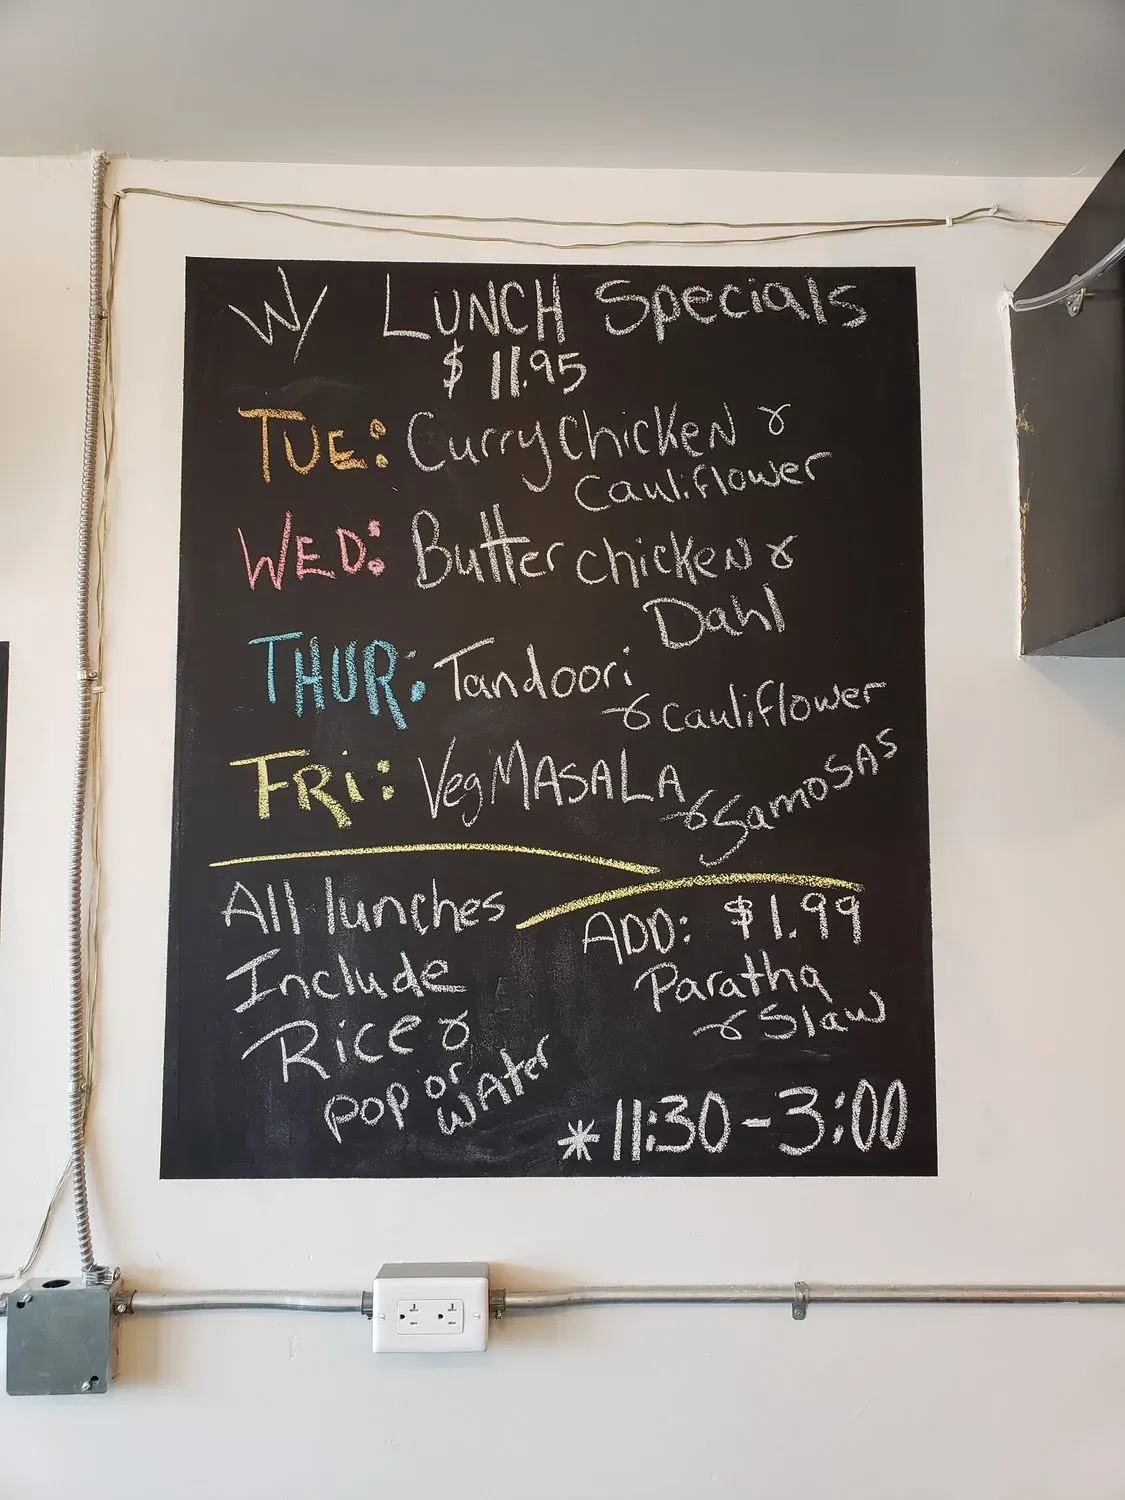 W/ LUNCH Specials
$11.95
TUE: Curry Chicken &
Cauliflower
WED: Butter chicken &
Dahl
THUR: Tandoori
& Cauliflower
FRi: Veg MASALA
& SamoSAS
All lunches
Include
Rice &
POP or
WAter
ADD: $1.99
Paratha
& Slaw
*11:30-3:00